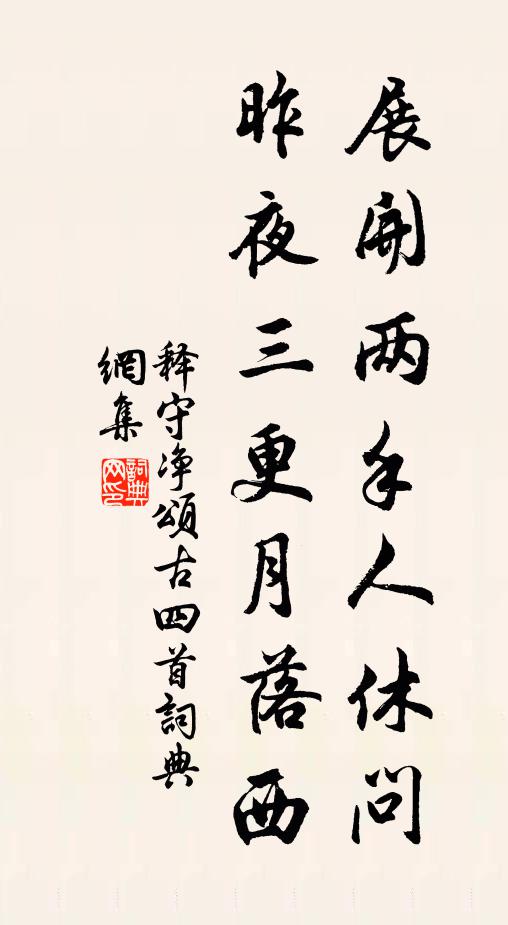 展開两手人休問
昨夜三更月落西
释守净頌古四首詞典
網集
詞典
网印